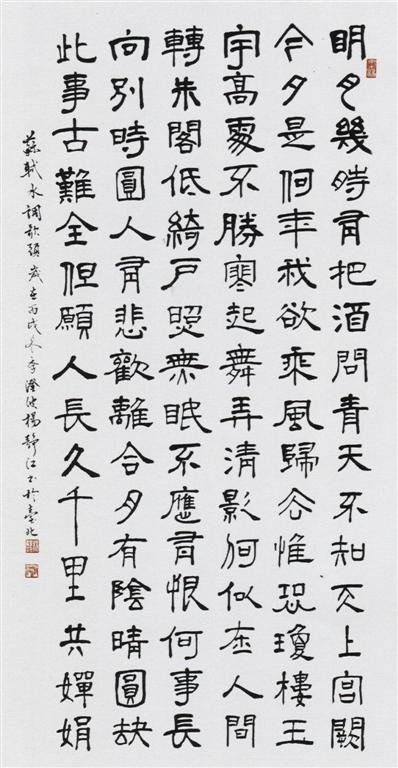 明月幾時有把酒問青天不知天上宮闕
今夕是何年我欲乘風歸去惟恐瓊樓玉
宇高處不勝寒起舞弄清影何似在人間
轉朱閣低綺戶照無眠不應有恨何事長
向別時圓人有悲歡離合月有陰晴圓缺
此事古難全但願人長久千里共嬋娟
蘇軾水調歌頭 歲在丙戌冬季 楊靜江書於臺北